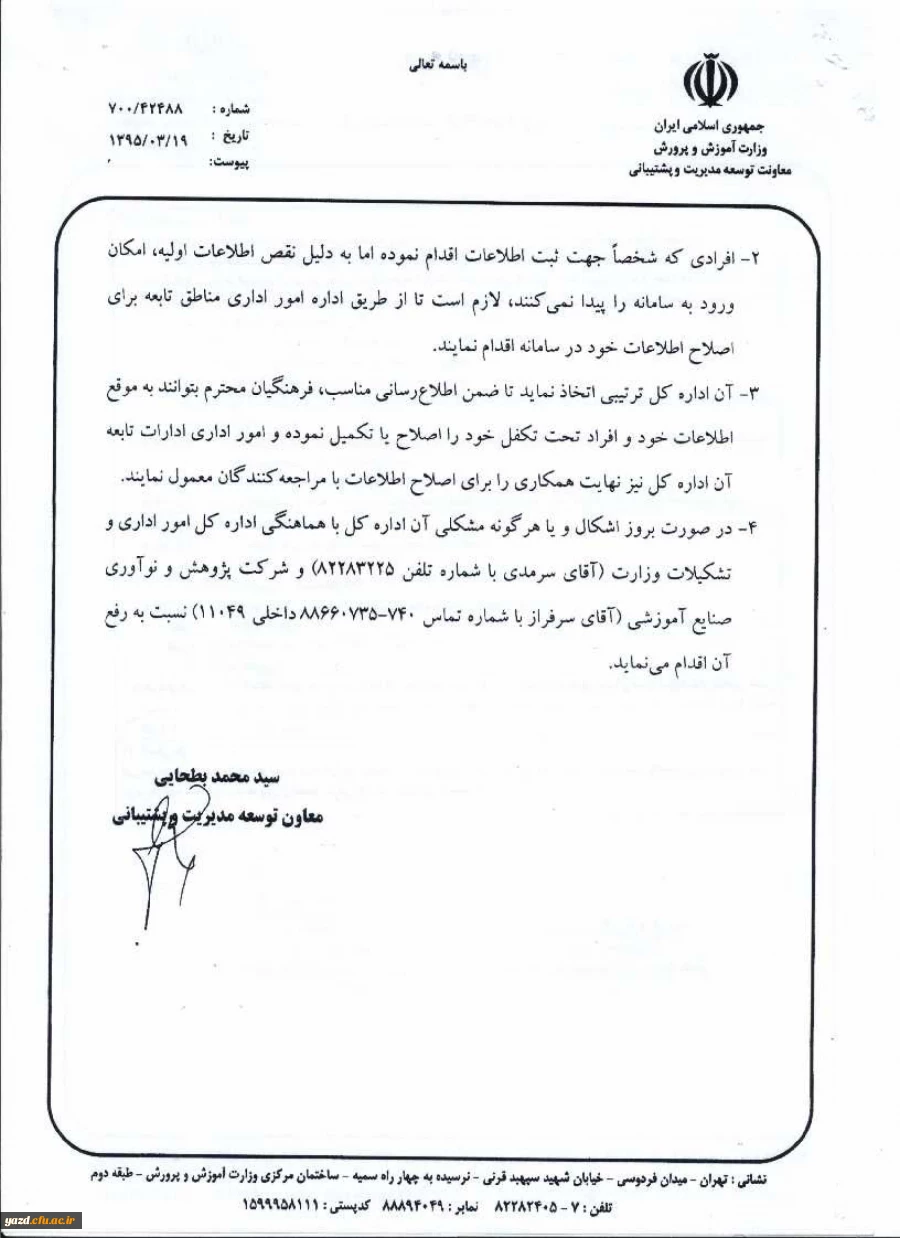 باسمه تعالی
جمهوری اسلامی ایران
وزارت آموزش و پرورش
معاونت توسعه مدیریت و پشتیبانی
شماره : ۷۰۰/۴۲۴۸۸
تاریخ : ۱۳۹۵/۰۳/۱۹
پیوست:
۲- افرادی که شخصاً جهت ثبت اطلاعات اقدام نموده اما به دلیل نقص اطلاعات اولیه، امکان
ورود به سامانه را پیدا نمی‌کنند، لازم است تا از طریق اداره امور اداری مناطق تابعه برای
اصلاح اطلاعات خود در سامانه اقدام نمایند.
۳- آن اداره کل ترتیبی اتخاذ نماید تا ضمن اطلاع‌رسانی مناسب، فرهنگیان محترم بتوانند به موقع
اطلاعات خود و افراد تحت تکفل خود را اصلاح یا تکمیل نموده و امور اداری ادارات تابعه
آن اداره کل نیز نهایت همکاری را برای اصلاح اطلاعات با مراجعه‌کنندگان معمول نمایند.
۴- در صورت بروز اشکال و یا هرگونه مشکلی آن اداره کل با هماهنگی اداره کل امور اداری و
تشکیلات وزارت (آقای سرمدی با شماره تلفن ۸۲۲۸۳۲۲۵) و شرکت پژوهش و نوآوری
صنایع آموزشی (آقای سرفراز با شماره تماس ۷۴۰-۸۸۶۶۰۷۳۵ داخلی ۱۱۰۴۹) نسبت به رفع
آن اقدام می‌نماید.
سید محمد بطحایی
معاون توسعه مدیریت و پشتیبانی
نشانی : تهران - میدان فردوسی - خیابان شهید سپهبد قرنی - نرسیده به چهار راه سمیه - ساختمان مرکزی وزارت آموزش و پرورش - طبقه دوم
تلفن : ۷ - ۸۲۲۸۲۴۰۵ نمابر : ۸۸۸۹۴۰۴۹ کدپستی : ۱۵۹۹۹۵۸۱۱۱
yazd.cfu.ac.ir